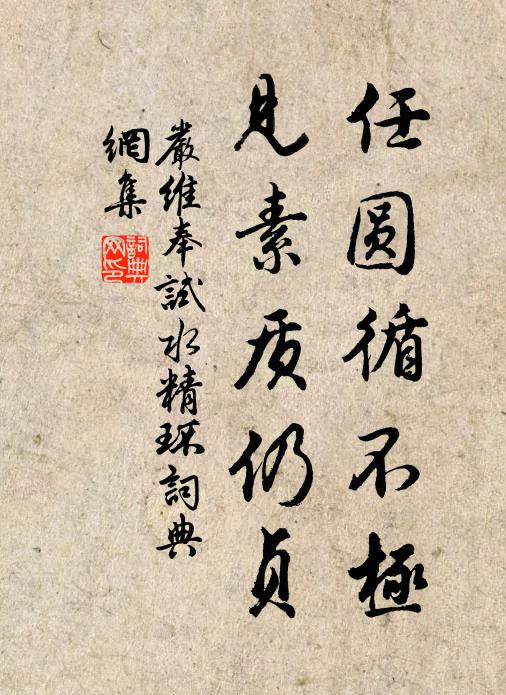 任圆循不極
見素质仍貞
嚴維奉試水精環詞典
網集
詞典
网印